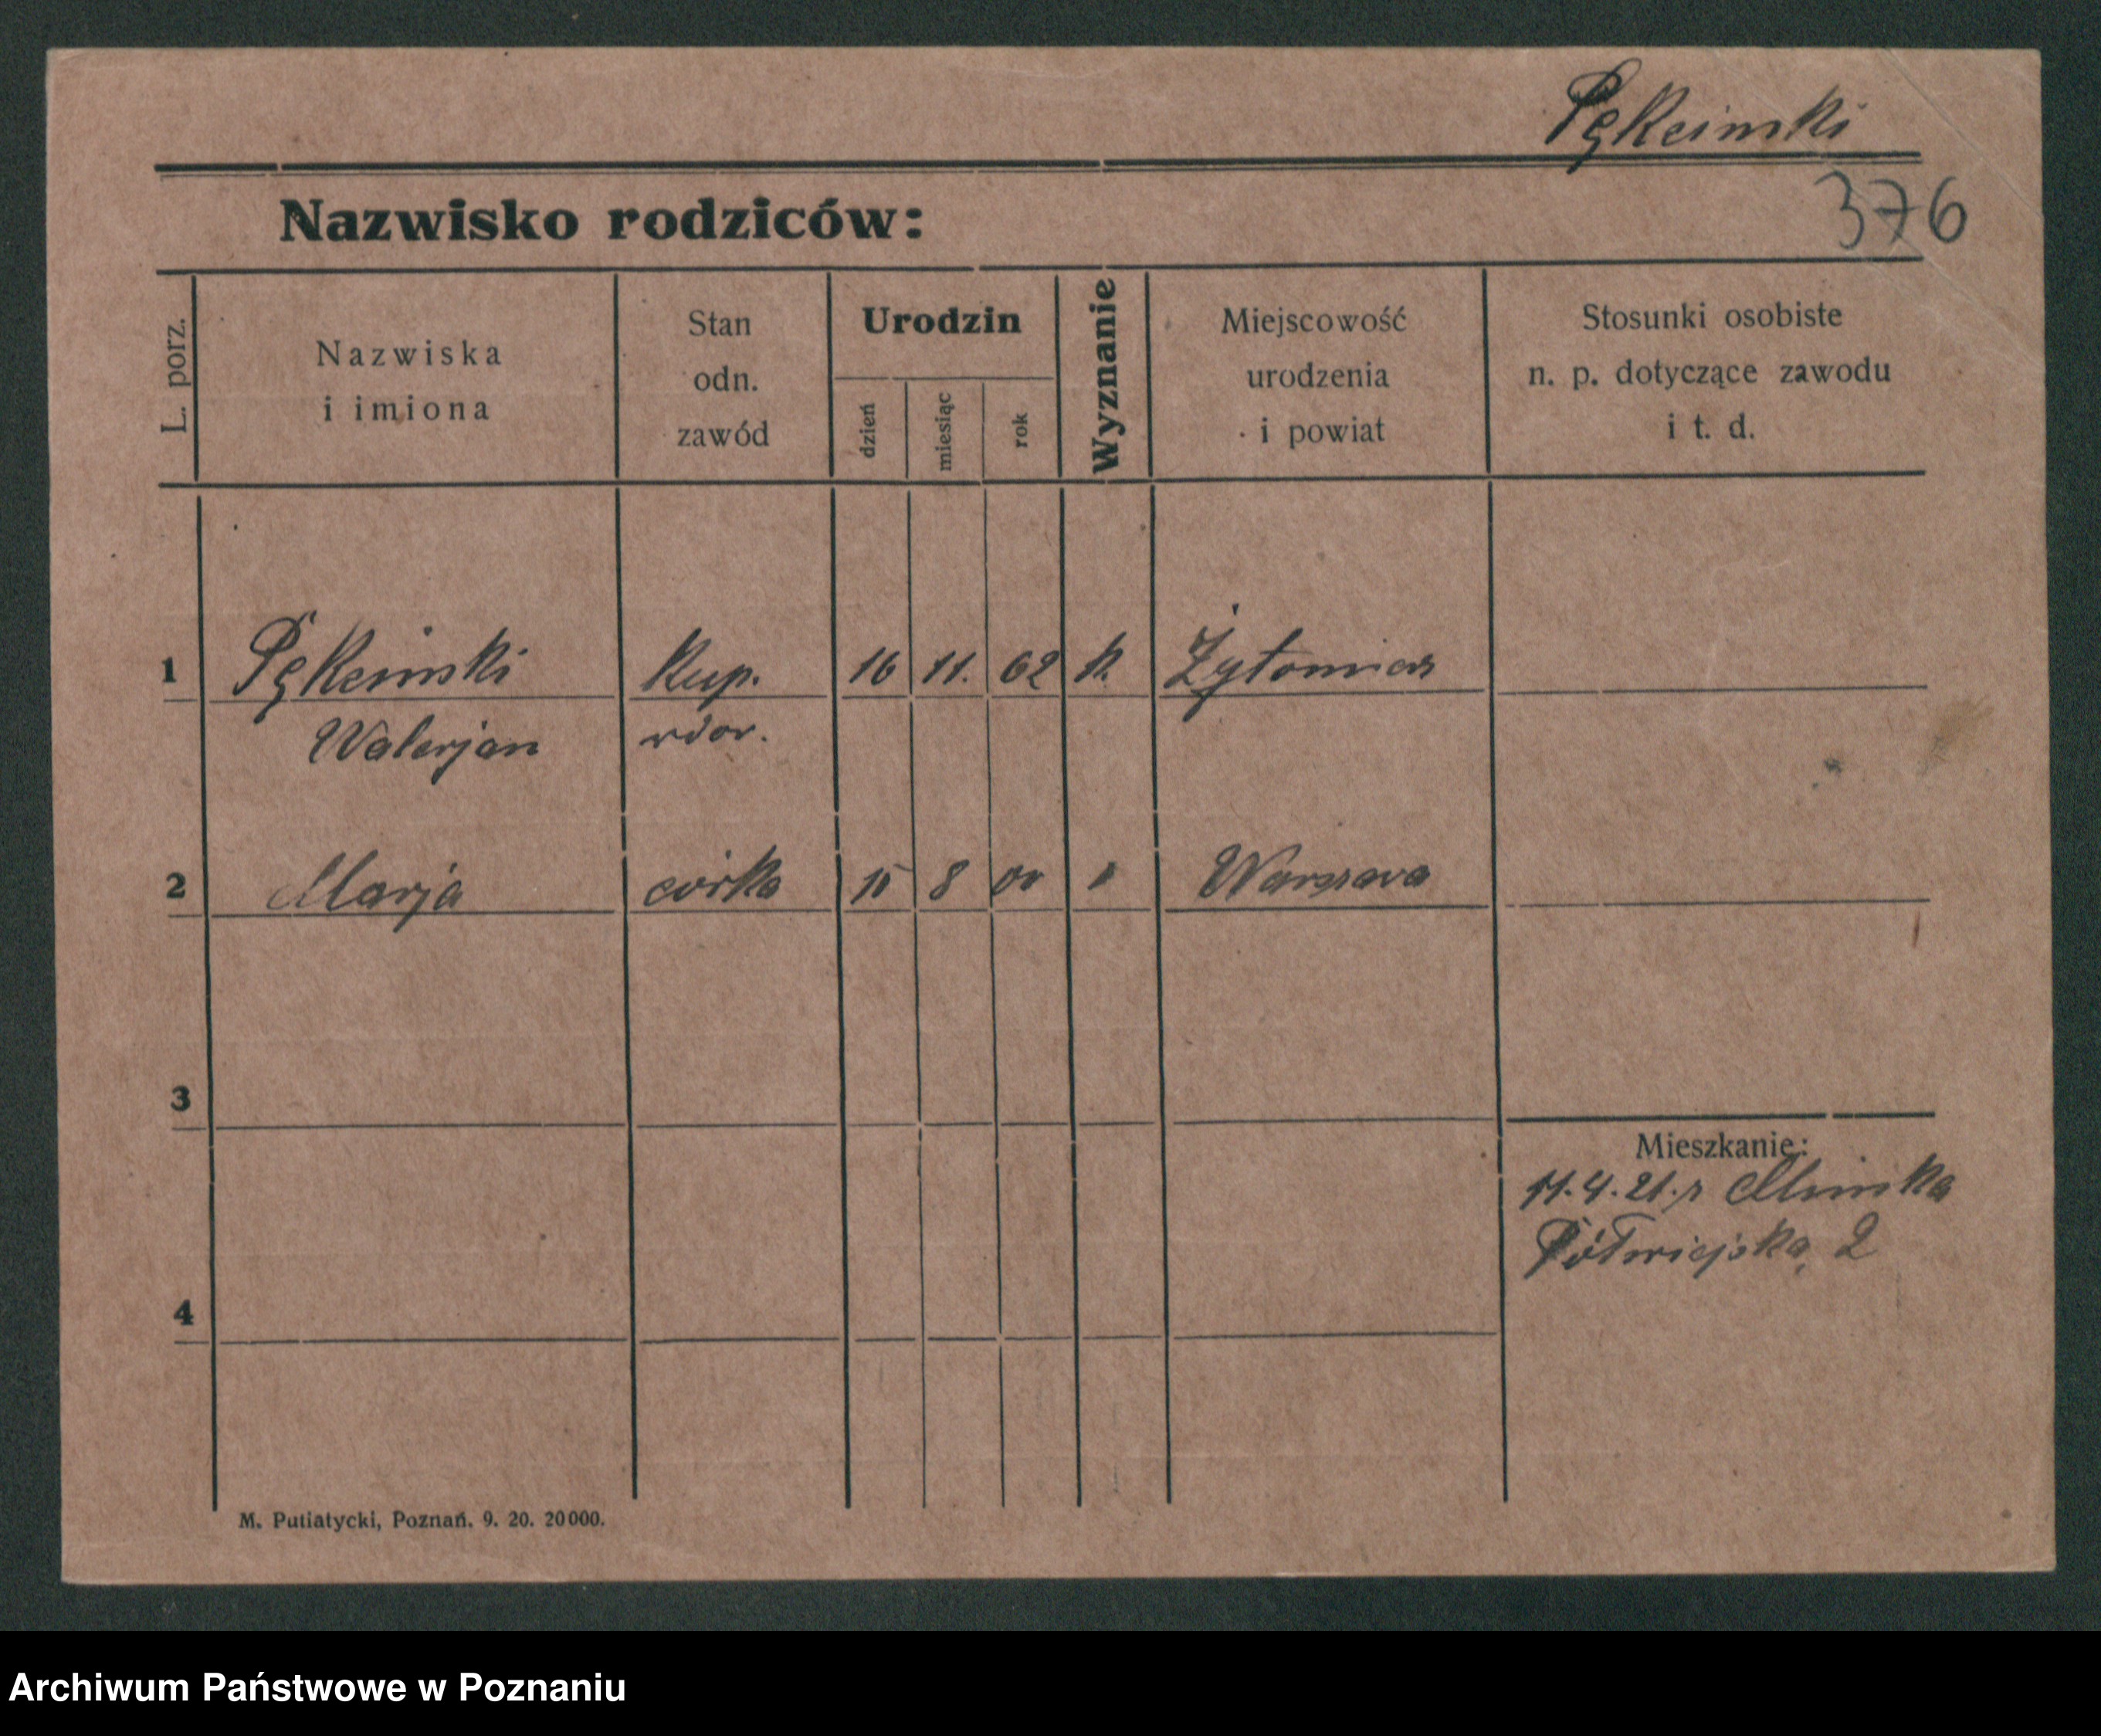 Pękciński
376
Nazwisko rodziców:
L. porz.
Nazwiska
i imiona
Stan
odn.
zawód
Urodzin
dzień
miesiąc
rok
Wyznanie
Miejscowość
urodzenia
i powiat
Stosunki osobiste
n. p. dotyczące zawodu
i t. d.
1 Pękciński kup. 16 11. 62 k. Żytomierz
Walerjan wdow.
2 Marja córka 15 8 00 " Warszawa
3
Mieszkanie:
11.4.21. z Mińska
Półwiejska, 2
4
M. Putiatycki, Poznań. 9. 20. 20000.
Archiwum Państwowe w Poznaniu